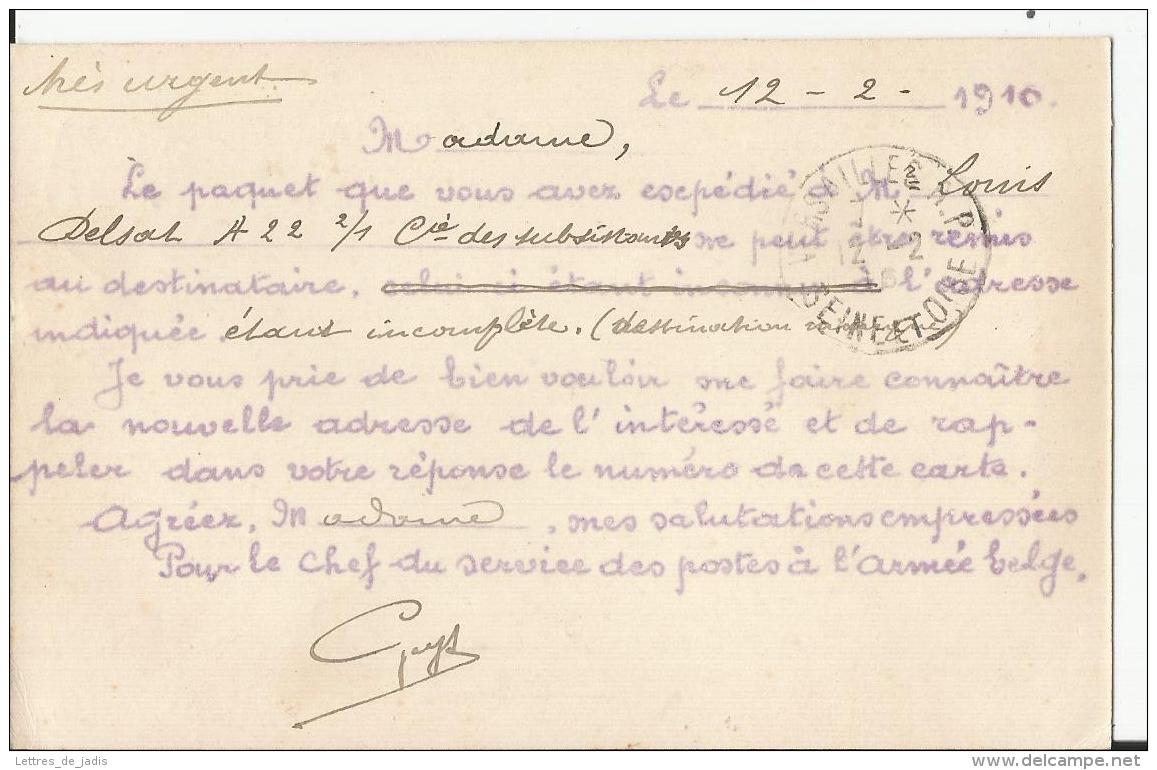 très urgent.
Le 12 - 2 - 1916.
Madame,
Le paquet que vous avez expédié à Mr Louis
Delsat A 22 2/1 Cie des subsistants ne peut être remis
au destinataire, celui-ci étant inconnu à l'adresse
indiquée étant incomplète. (destination
Je vous prie de bien vouloir me faire connaître
la nouvelle adresse de l'intéressé et de rap-
peler dans votre réponse le numéro de cette carte.
Agréez, Madame, mes salutations empressées
Pour le Chef du service des postes à l'Armée belge.
VERSAILLES R.P.
12 - 2
SEINE ET OISE
Lettres_de_jadis
www.delcampe.net